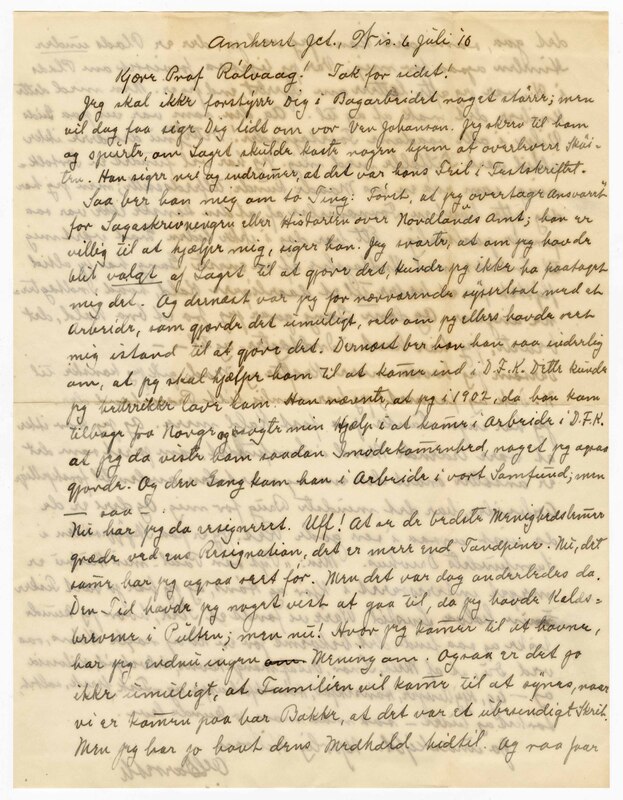 Amherst Jct., Wis. 6 Juli 16
Kjære Prof Rölvaag! Tak for sidst!
Jeg skal ikke forstyrre Dig i Bogarbeidet noget större; men
vil dog faa sige Dig lidt om vor Ven Johanson. Jeg skrev til ham
og spurte, om Laget skulde kaste nogen hjem at overhvers Skös-
ten. Han siger nei og indrömer, at det var hans Feil i Festskriftet.
Saa ber han mig om to Ting: Först, at jeg overtager Ansvaret
for Sagaskrivningen eller Historien over Nordlands Amt; han er
villig til at hjælpe mig, siger han. Jeg svarte, at om jeg havde
blit valgt af Laget til at gjöre det, kunde jeg ikke ha paataget
mig det. Og dernæst var jeg for nærværende sysselsat med et
Arbeide, som gjorde det umuligt, selv om jeg ellers havde vært
mig istand til at gjöre det. Dernæst ber han saa inderlig
om, at jeg skal hjælpe ham til at kome ind i D.F.K. Dette kunde
jeg heller ikke love ham. Han nævnte, at jeg i 1902, da han kom
tilbage fra Norge og sögte min Hjælp i at kome i Arbeide i D.F.K.
at jeg da viste ham saadan Imödekomenhed, noget jeg ogsaa
gjorde. Og den Gang kom han i Arbeide i vort Samfund; men
— saa —.
Nu har jeg da resigneret. Uff! At se de bedste Menighedslemer
græde ved ens Resignation, det er mere end Tandpine. Nu, det
same har jeg ogsaa vært för. Men det var dog anderledes da.
Den Tid havde jeg noget vist at gaa til, da jeg havde Kalds-
brevene i Pulten; men nu! Hvor jeg komer til at havne,
har jeg endnu ingen Mening om. Ogsaa er det jo
ikke umuligt, at Familien vil kome til at synes, naar
vi er komen paa bar Bakke, at det var et übevendigt Skrit.
Men jeg har jo havt dens Medhold hidtil. Og saa faar